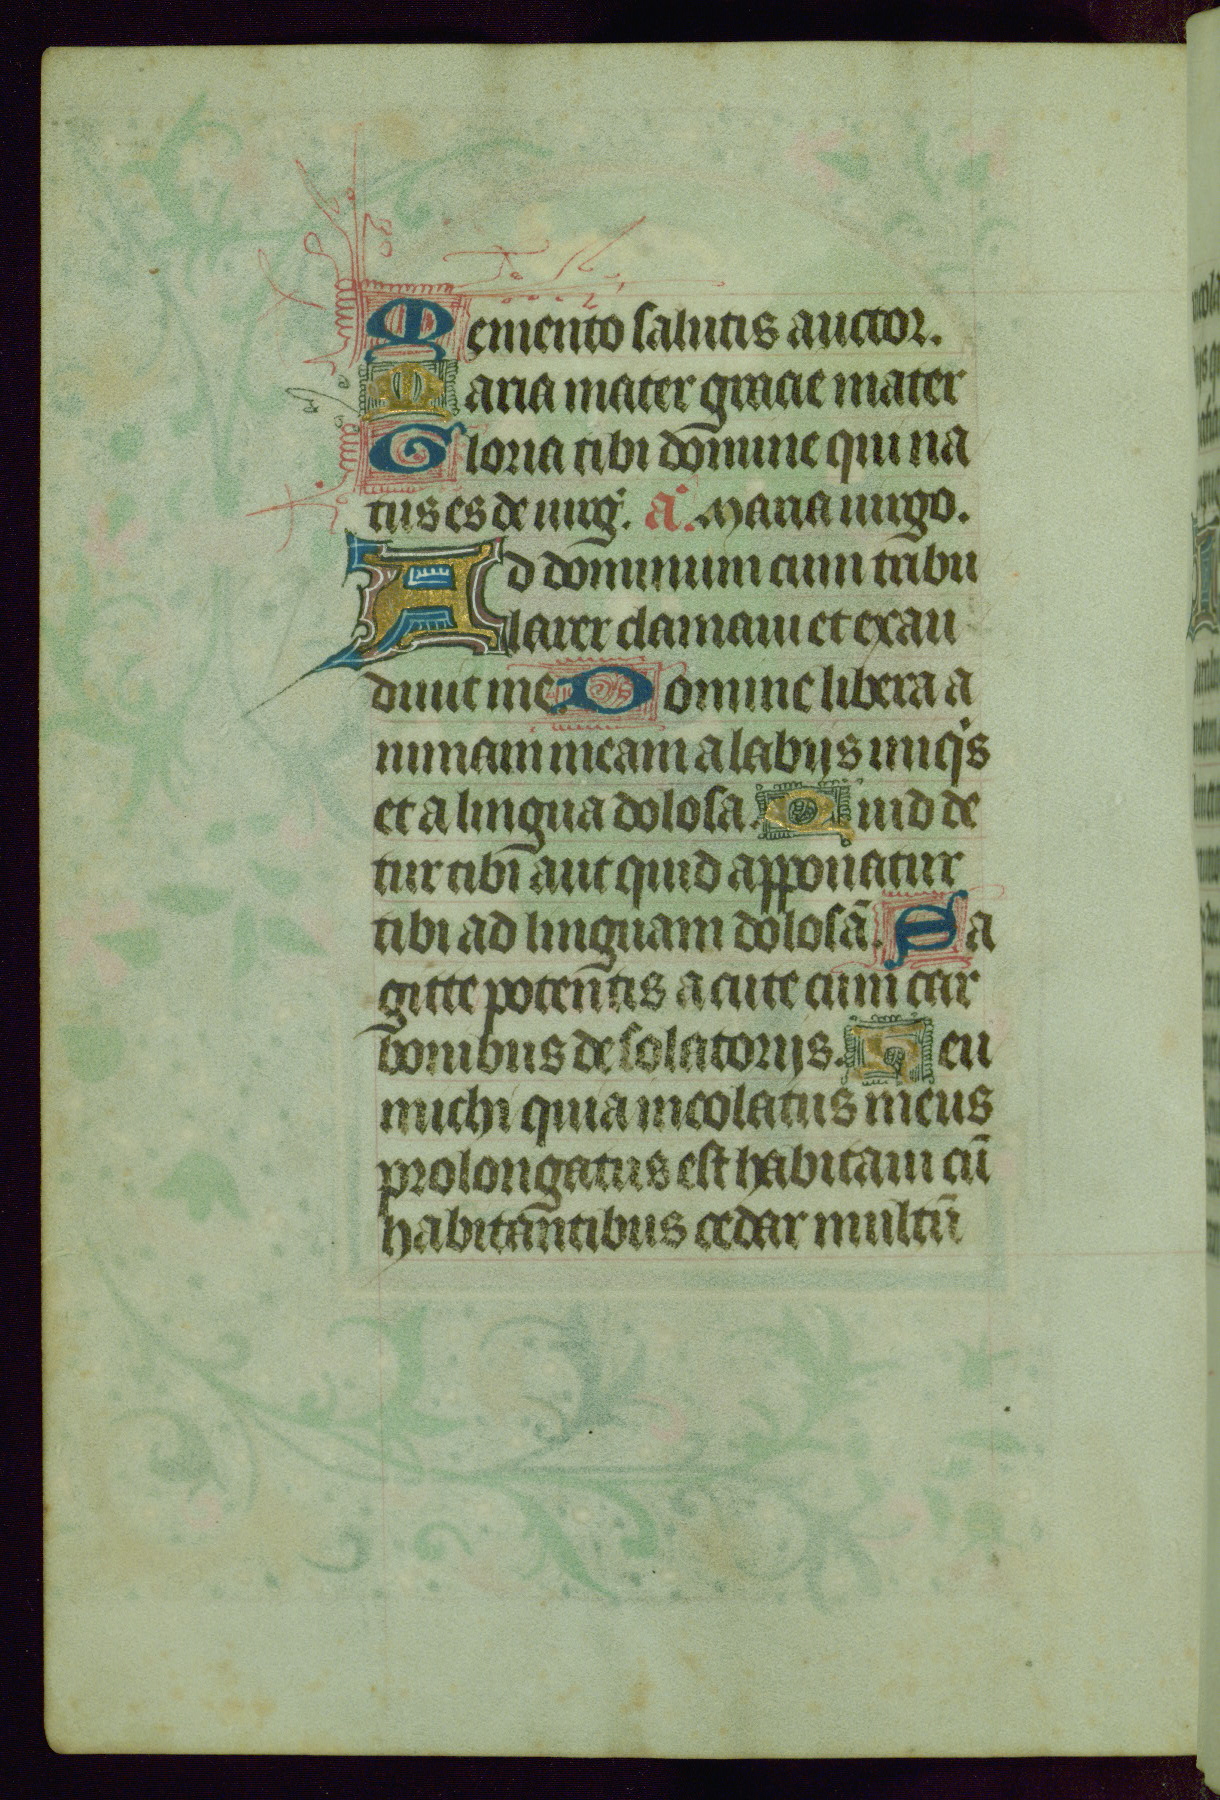 Memento salutis auctor.
Maria mater gracie mater
Gloria tibi domine qui na
tus es de uirg̃. a͂. Maria uirgo.
Ad dominum cum tribu
larer clamaui et exau
diuit me. Domine libera a
nimam meam a labijs iniq̃s
et a lingua dolosa. Quid de
tur tibi aut quid apponatur
tibi ad linguam dolosã. Sa
gitte potentis acute cum car
bonibus desolatorijs. Heu
michi quia incolatus meus
prolongatus est habitaui cũ
habitantibus cedar multũ